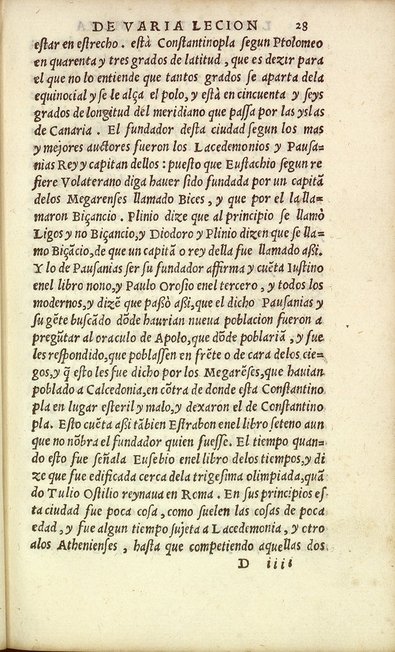 DE VARIA LECION 28
estar en estrecho. està Constantinopla segun Ptolomeo
en quarenta y tres grados de latitud, que es dezir para
el que no lo entiende que tantos grados se aparta dela
equinocial y se le alça el polo, y està en cincuenta y seys
grados de longitud del meridiano que passa por las yslas
de Canaria. El fundador desta ciudad segun los mas
y mejores auctores fueron los Lacedemonios y Pausa-
nias Rey y capitan dellos: puesto que Eustachio segun re
fiere Volaterano diga hauer sido fundada por un capitã
delos Megarenses llamado Bices, y que por el la lla-
maron Biçancio. Plinio dize que al principio se llamò
Ligos y no Biçancio, y Diodoro y Plinio dizen que se lla=
mo Biçãcio, de que un capitã o rey della fue llamado aßi.
Y lo de Pausanias ser su fundador affirma y cuẽta Iustino
enel libro nono, y Paulo Orosio enel tercero, y todos los
modernos, y dizẽ que paßò aßi, que el dicho Pausanias y
su gẽte buscãdo dõde haurian nueua poblacion fueron a
pregũtar al oraculo de Apolo, que dõde poblariã, y fue
les respondido, que poblassen en frẽte o de cara delos cie-
gos, y q̃ esto les fue dicho por los Megarẽses, que hauian
poblado a Calcedonia, en cõtra de donde esta Constantino
pla en lugar esteril y malo, y dexaron el de Constantino
pla. Esto cuẽta aßi tãbien Estrabon enel libro seteno aun
que no nõbra el fundador quien fuesse. El tiempo quan-
do esto fue señala Eusebio enel libro delos tiempos, y di
ze que fue edificada cerca dela trigesima olimpiada, quã
do Tulio Ostilio reynaua en Roma. En sus principios es
ta ciudad fue poca cosa, como suelen las cosas de poca
edad, y fue algun tiempo sujeta a Lacedemonia, y otro
alos Athenienses, hasta que competiendo aquellas dos
D iiij